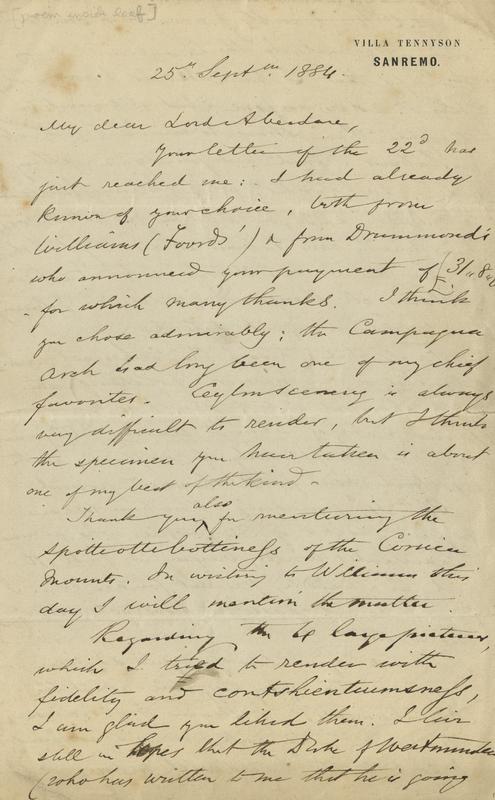 [poem inside leaf]
VILLA TENNYSON
SANREMO.
25th Septm 1884.
My dear Lord Aberdare,
Your letter of the 22d has
just reached me: I had already
known of your choice, both from
Williams (Foords') & from Drummonds
who announced your payment of £31"8"
- for which many thanks. I think
you chose admirably; the Campagna
Arch had long been one of my chief
favorites. Ceylon scenery is always
very difficult to render, but I think
the specimen you have taken is about
one of my best of the kind -
Thank you also for mentioning the
spottottlebottiness of the Corsica
mounts. In writing to Williams this
day I will mention the matter.
Regarding the large pictures,
which I tried to render with
fidelity and contshientiumsness,
I am glad you liked them. I live
still in hopes that the Duke of Westminster
(who has written to me that he is going